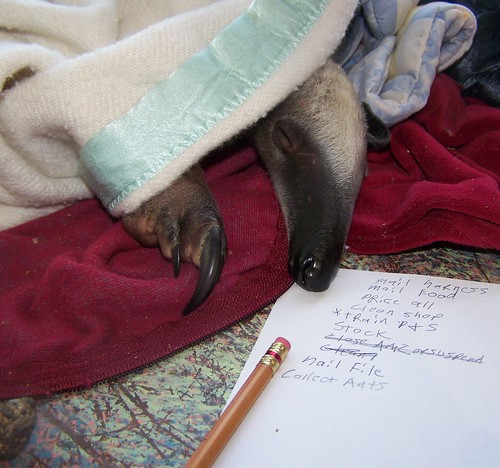 mail harness
mail food
price all
clean shop
* train P & S
Stock
close AMZ or suspend
clean
nail file
Collect Ants